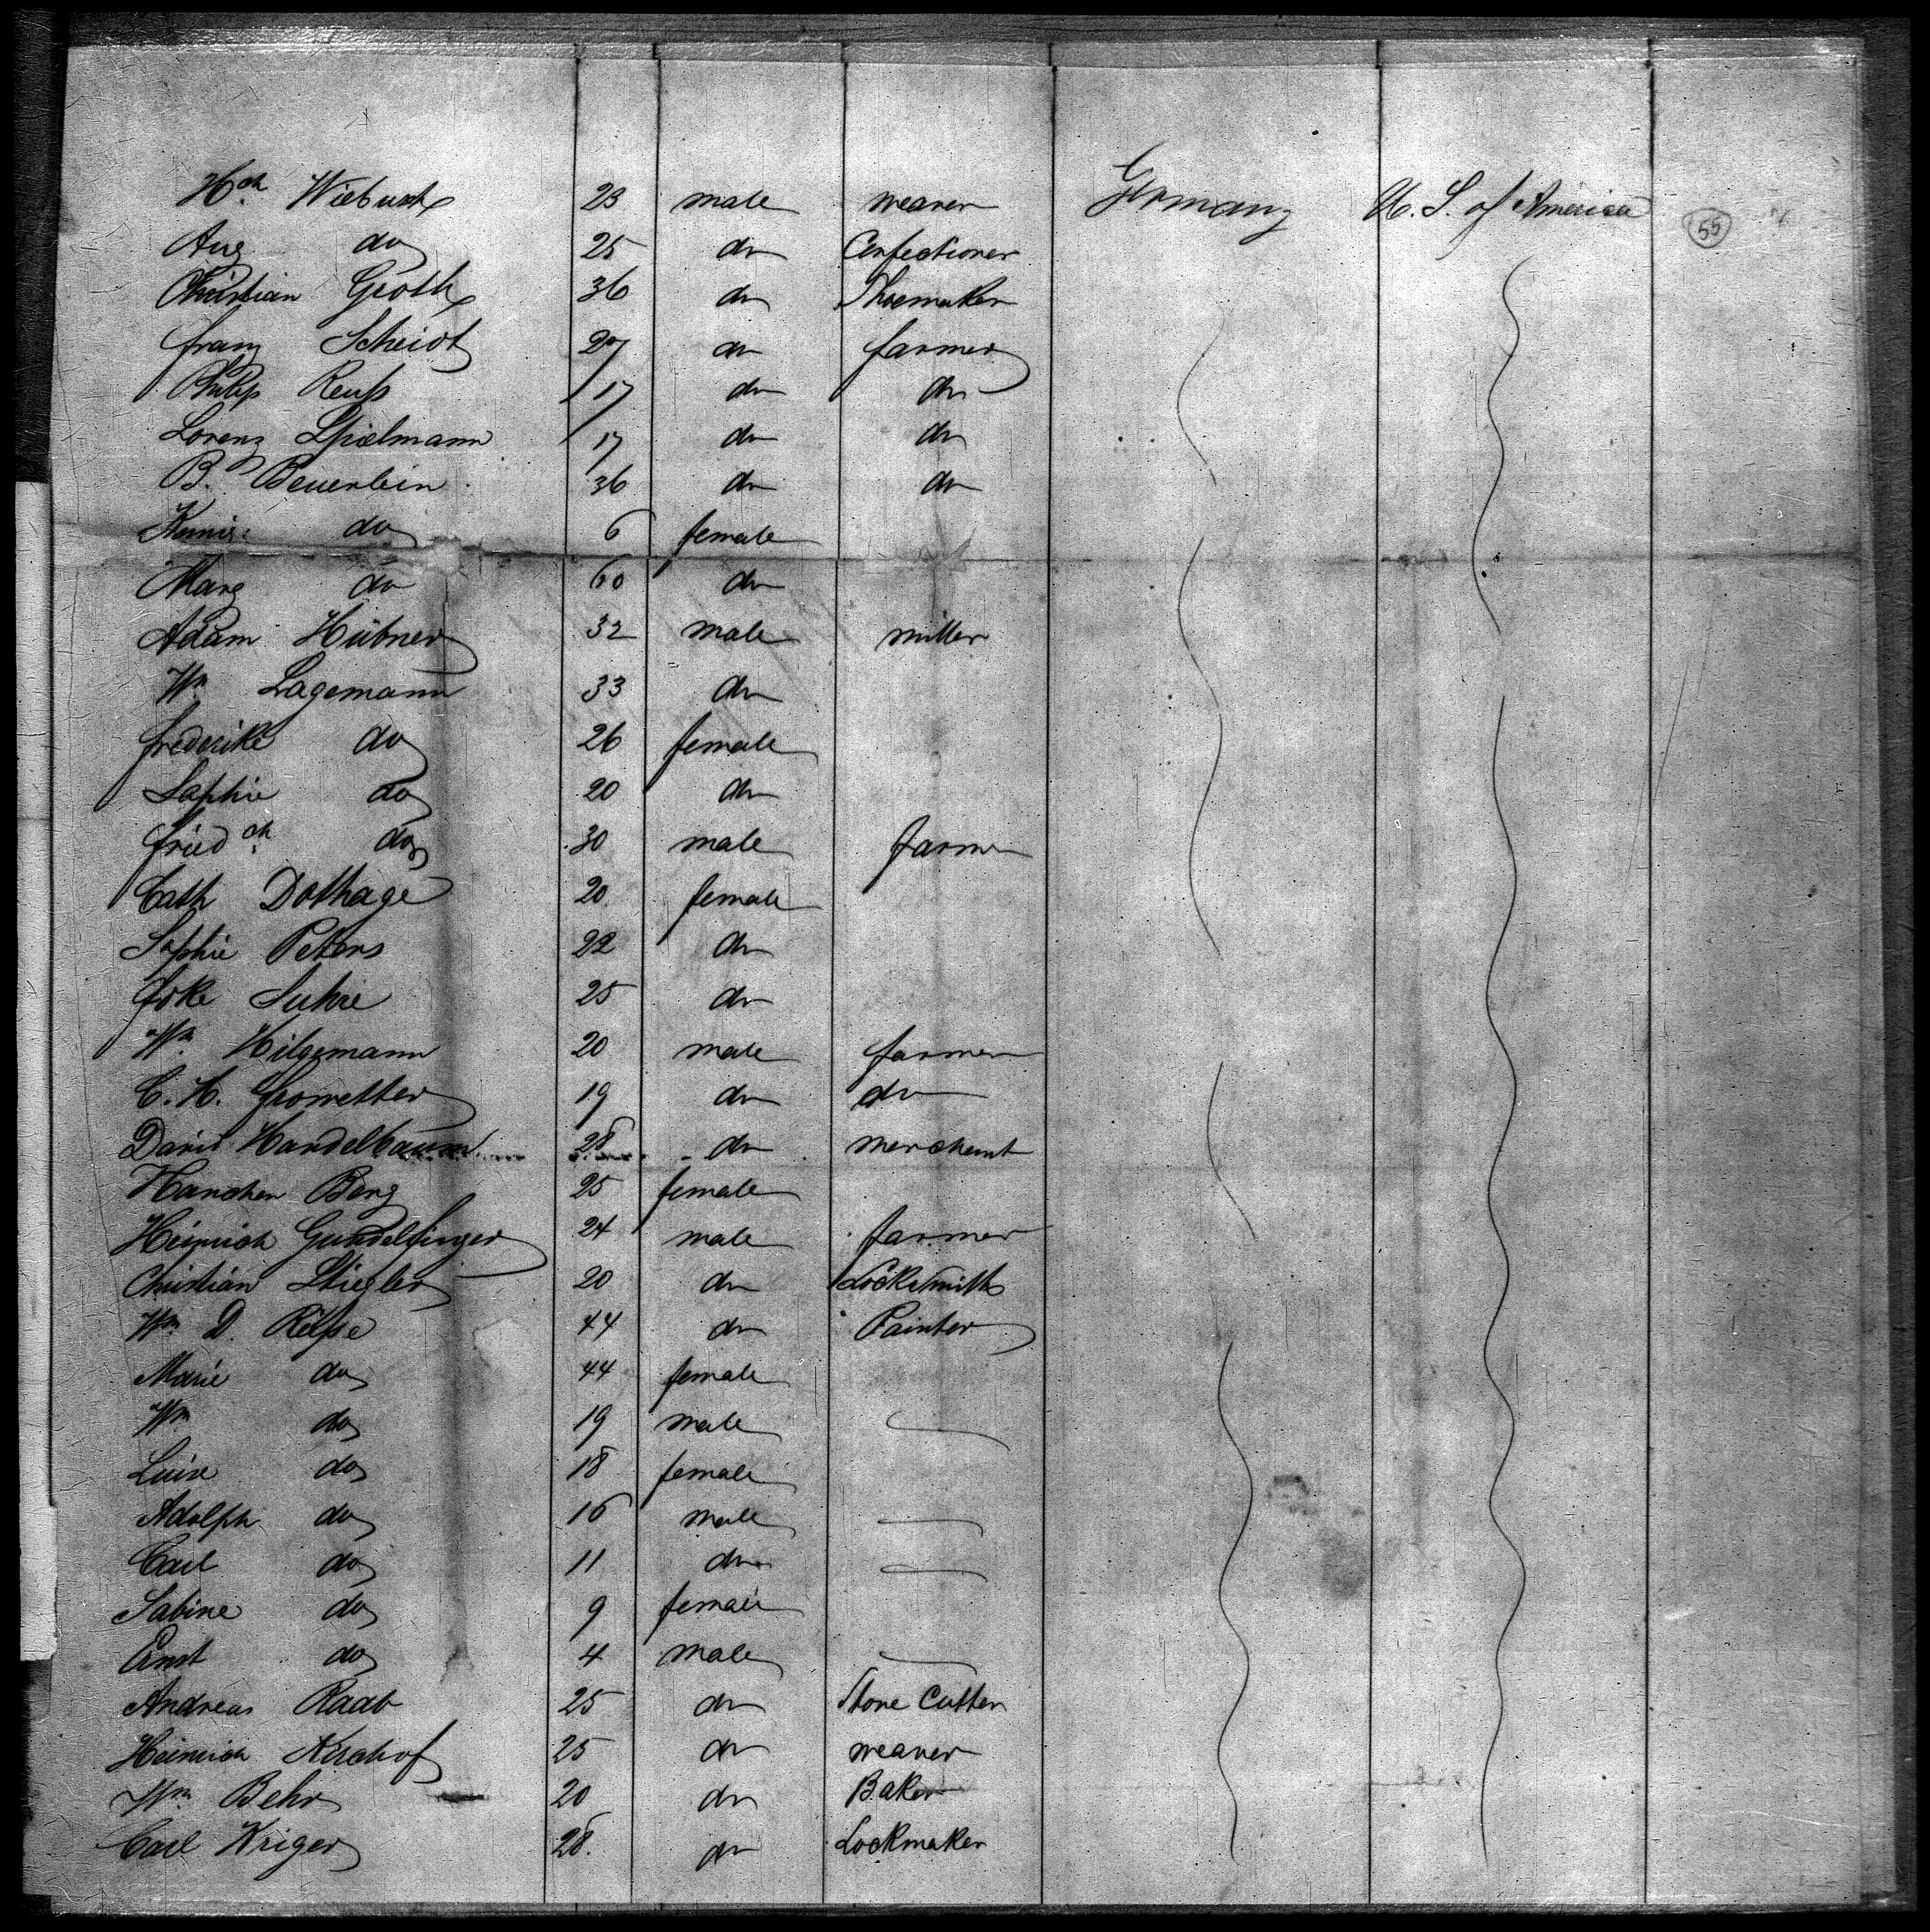 Hch. Wiebusch 23 male weaver Germany U. S. of America
55
Aug do 25 do Confectioner
Christian Groth 36 do Shoemaker
Franz Scheidt 27 do farmer
Philip Reuß 17 do do
Lorenz Spielmann 17 do do
B. Beuerlein 36 do do
do 6 female
Marg do 60 do
Adam Hübner 32 male miller
Wm Lagemann 33 do
Frederike do 26 female
Sophie do 20 do
Friedch. do 30 male farmer
Cath Dothage 20 female
Sophie Peters 22 do
Suhre 25 do
Wm. Hilgemann 20 male farmer
C. H. 19 do do
David Handelbaum 28 do merchant
Hanchen Berg 25 female
Heinrich Gundelfinger 24 male farmer
Christian Stiegler 20 do Locksmith
Wm D. 44 do Painter
Marie do 44 female
Wm do 19 male
Luise do 18 female
Adolph do 16 male
Carl do 11 do
Sabine do 9 female
Ernst do 4 male
Andreas Raab 25 do Stone Cutter
Heinrich Kirchhof 25 do weaver
Wm Behr 20 do Baker
Carl Kriger 28. do Lockmaker